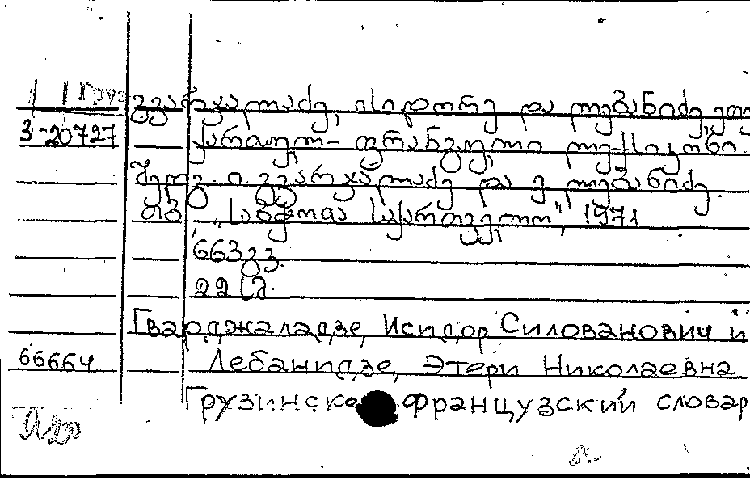 Груз
გვარჯალაძე, ისიდორე და ლებანიძე, ეთე
3-20727
ქართულ-ფრანგული ლექსიკონი.
შედგ. ი. გვარჯალაძე და ე. ლებანიძე.
თბ. „საბჭოთა საქართველო", 1971
663 გვ.
22 სმ.
Гварджаладзе, Исидор Силованович и
66664 Лебанидзе, Этери Николаевна
Грузинско французский словар